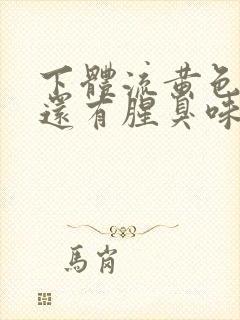 下體流黃色
還有腥臭味
馬崗